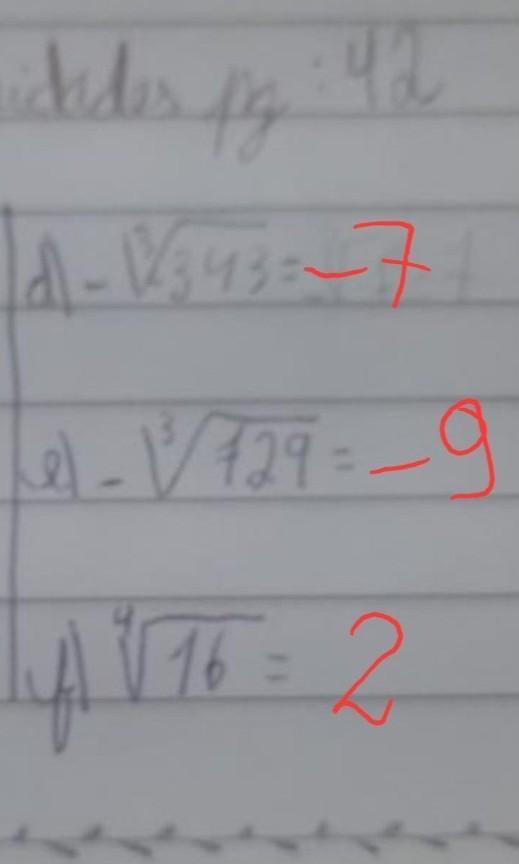 idades pg: 42
d) - ∛343 = -7
e) - ∛729 = -9
f) ∜16 = 2